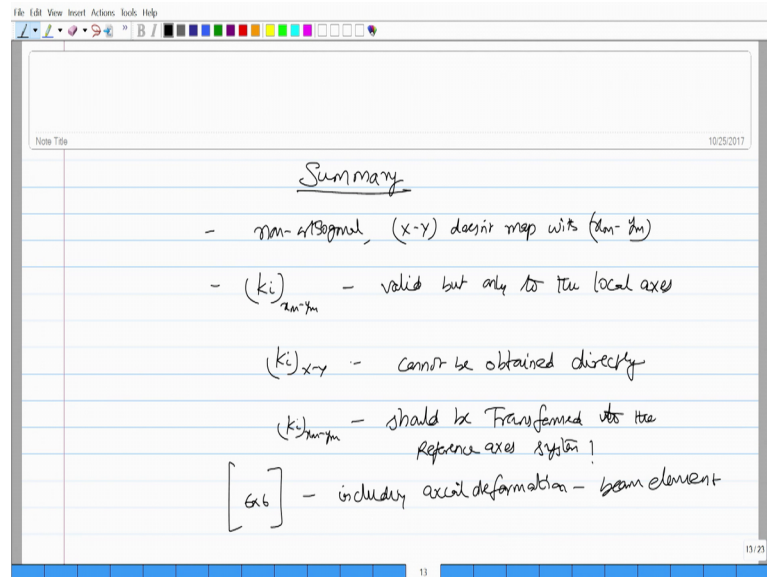 File Edit View Insert Actions Tools Help
B I
Note Title
10/25/2017
Summary
- non-orthogonal, (x-y) doesn't map with (xm-ym)
- (ki)xm-ym - valid but only to the local axes
(ki)x-y - cannot be obtained directly
(ki)xm-ym - should be Transformed to the
Reference axes system!
[6x6] - including axial deformation - beam element
13/23
13